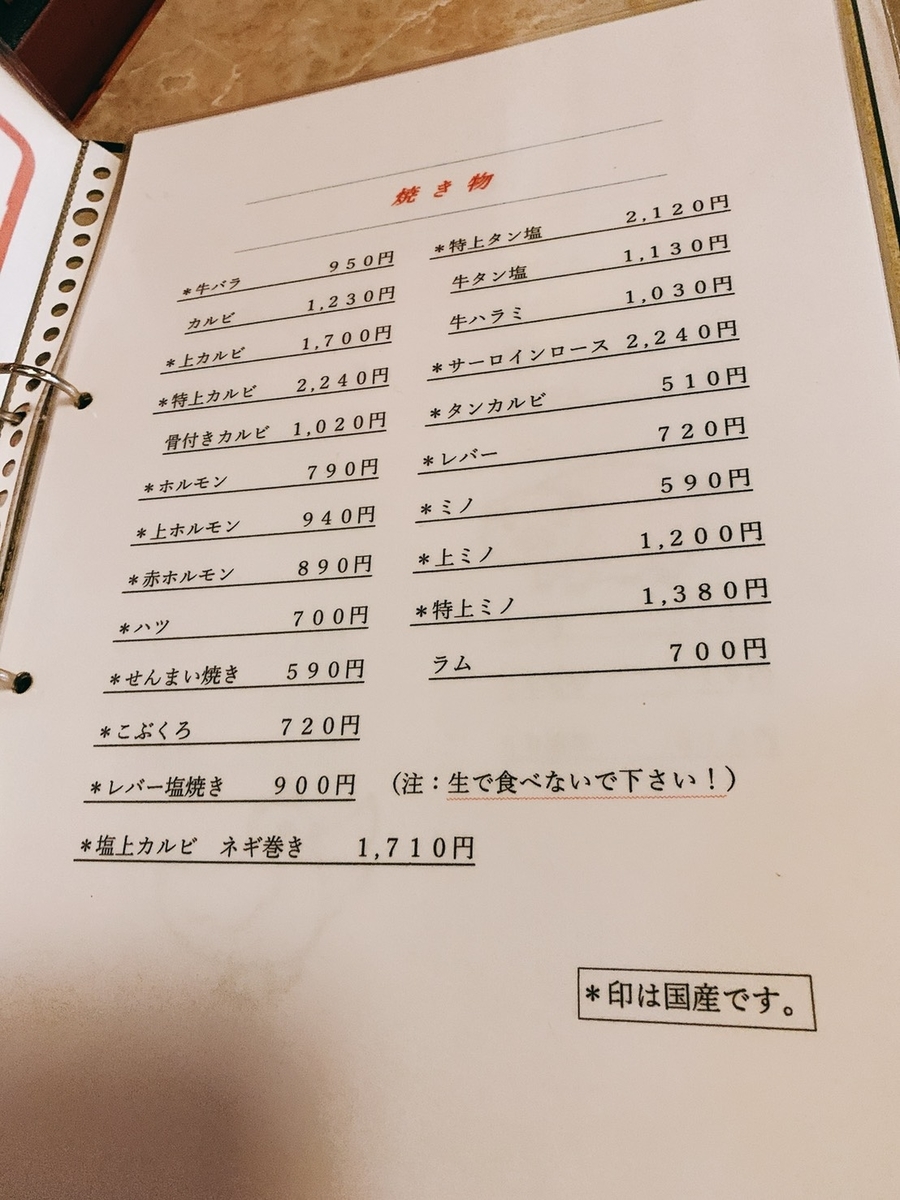 焼き物
*牛バラ 950円
カルビ 1,230円
*上カルビ 1,700円
*特上カルビ 2,240円
骨付きカルビ 1,020円
*ホルモン 790円
*上ホルモン 940円
*赤ホルモン 890円
*ハツ 700円
*せんまい焼き 590円
*こぶくろ 720円
*レバー塩焼き 900円 (注:生で食べないで下さい!)
*塩上カルビ ネギ巻き 1,710円
*特上タン塩 2,120円
牛タン塩 1,130円
牛ハラミ 1,030円
*サーロインロース 2,240円
*タンカルビ 510円
*レバー 720円
*ミノ 590円
*上ミノ 1,200円
*特上ミノ 1,380円
ラム 700円
*印は国産です。